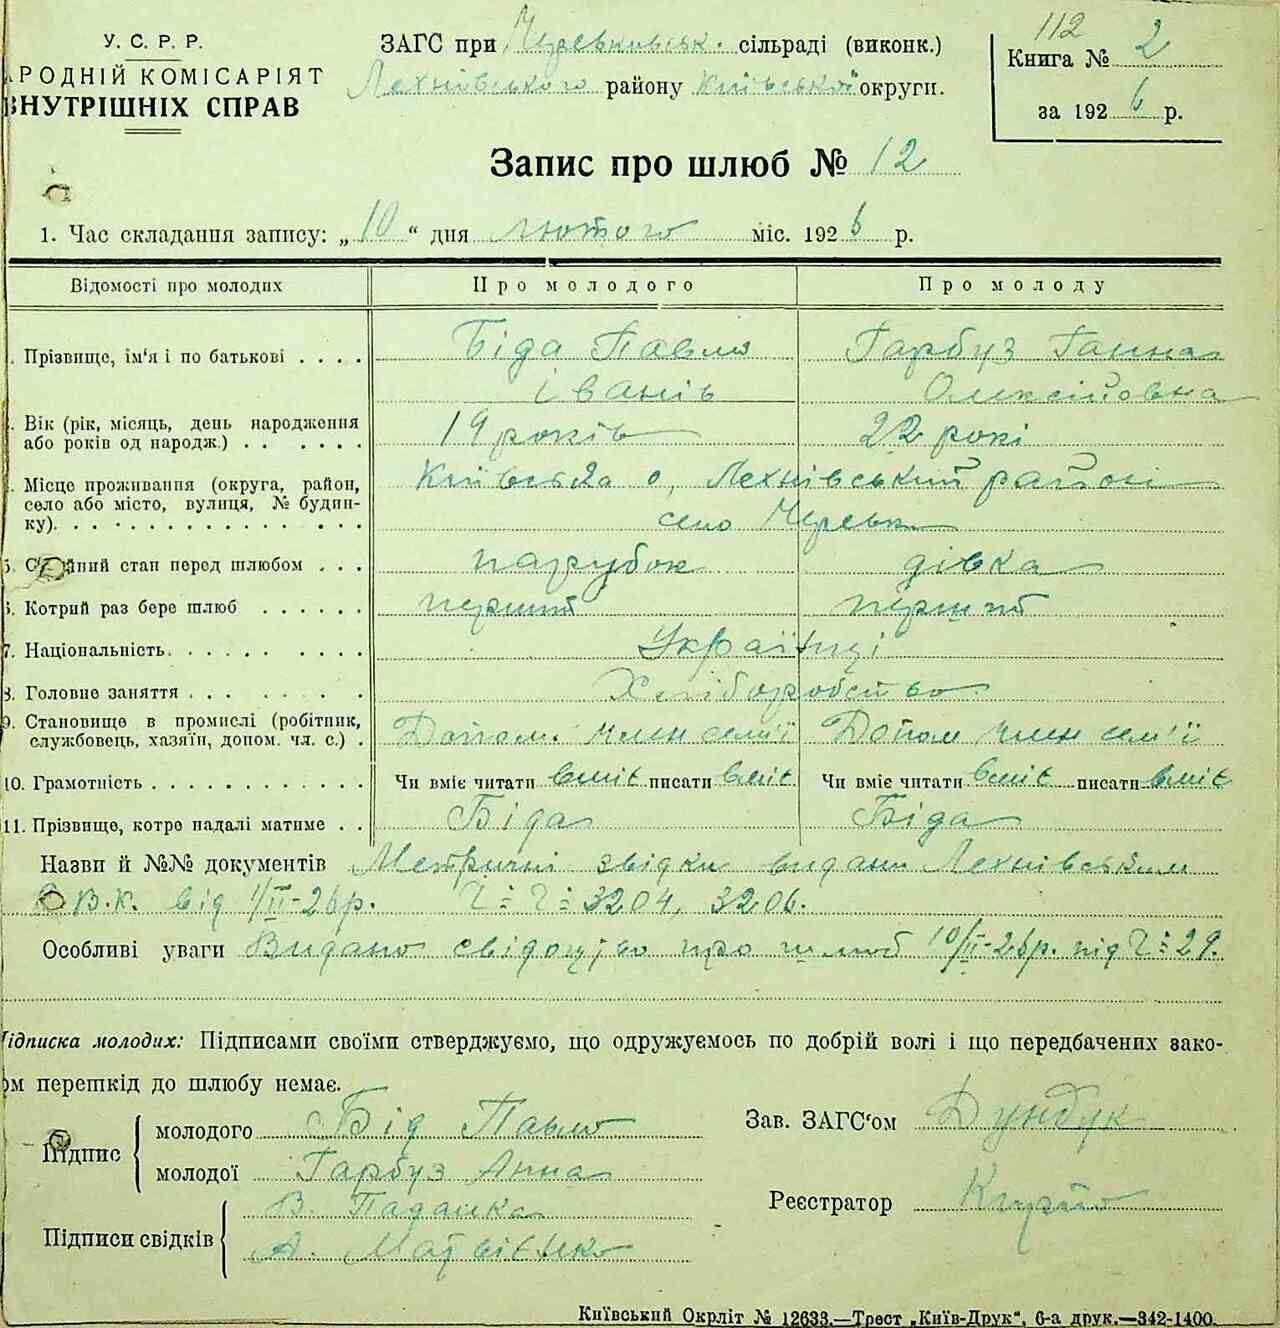 У. С. Р. Р.
РОДНІЙ КОМІСАРІЯТ
ВНУТРІШНІХ СПРАВ
ЗАГС при сільраді (виконк.)
Лехнівського району Київської округи.
112
Книга № 2
за 1926 р.
Запис про шлюб № 12
1. Час складання запису: „10“ дня лютого міс. 1926 р.
Відомості про молодих Про молодого Про молоду
. Прізвище, ім'я і по батькові . . . . Біда Павло Гарбуз Ганна
Іванів Олексійовна
. Вік (рік, місяць, день народження 19 років 22 рокі
або років од народж.) . . . . . .
. Місце проживання (округа, район, Київська о, Лехнівський район
село або місто, вулиця, № будин- село
ку). . . . . . . . . . . . . . .
5. С йний стан перед шлюбом . . . парубок дівка
6. Котрий раз бере шлюб . . . . . . перший перший
7. Національність. . . . . . . . . . Українці
8. Головне заняття . . . . . . . . . Хліборобство
9. Становище в промислі (робітник, Допом. член сем'ї Допом член сем'ї
службовець, хазяїн, допом. чл. с.) .
10. Грамотність . . . . . . . . . . . . Чи вміє читати вміє писати вміє Чи вміє читати вміє писати вміє
11. Прізвище, котре надалі матиме . . Біда Біда
Назви й №№ документів Метричні звідки видани Лехнівським
Р.В.К. від 1/ІІ-26р. Ч: Ч: 3204, 3206.
Особливі уваги Видано свідоцтво про шлюб 10/ІІ-26р. під Ч: 29.
Підписка молодих: Підписами своїми стверджуємо, що одружуємось по добрій волі і що передбачених зако-
ом перешкід до шлюбу немає.
Підпис
молодого Бід Павло
молодої Гарбуз Анна
Зав. ЗАГС'ом
Реєстратор
Підписи свідків
В. Падалка
А. Матвієнко
Київський Окрліт № 12633.—Трест „Київ-Друк“, 6-а друк.—342-1400.